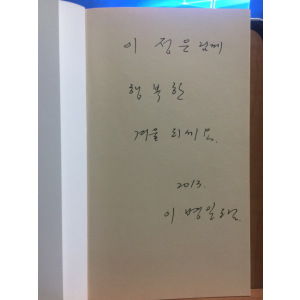 이 정은님께
행복한
겨울 되세요.
2013.
이병일